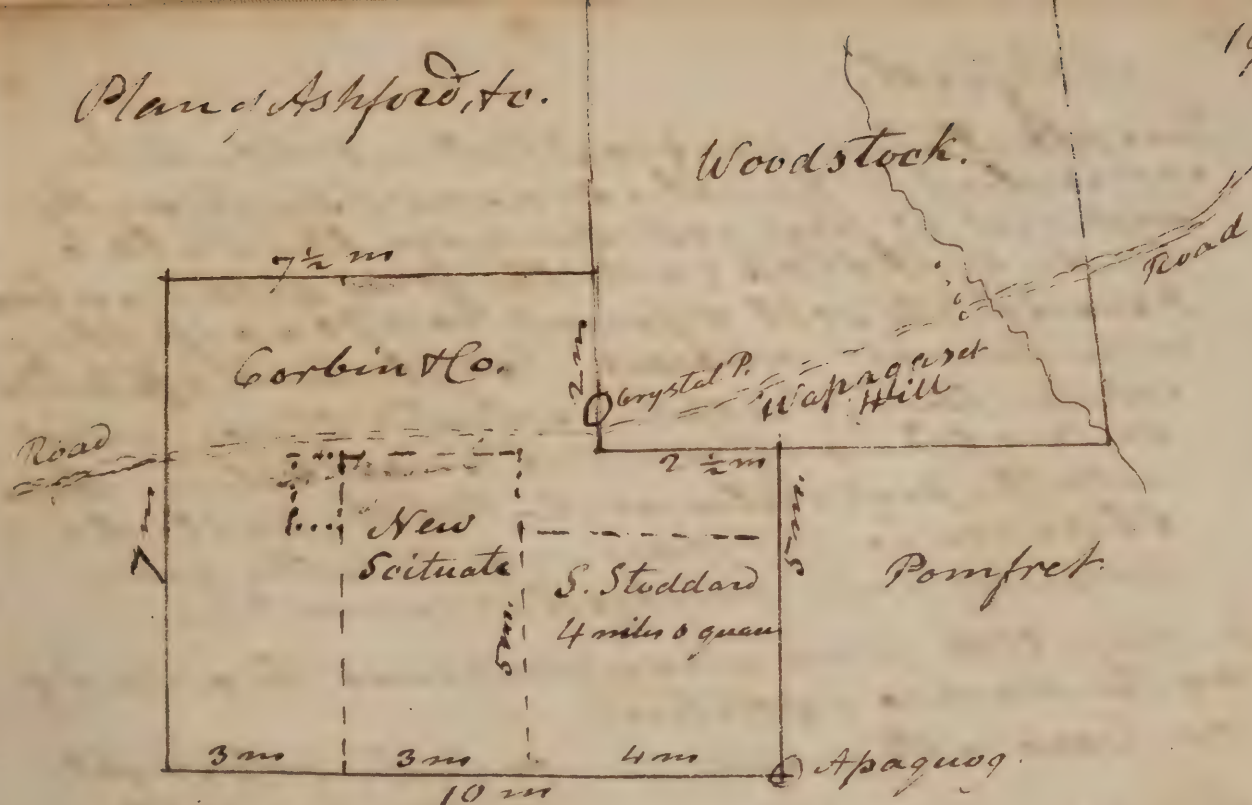 Plan of Ashford, &c.
Woodstock.
7 1/2 m
Corbin & Co.
2 m
Crystal P.
Road
Hill
Road
2 1/2 m
7 m
New
Scituate
5 m.
S. Stoddard
4 miles square
5 m.
Pomfret.
3 m
3 m
4 m
Apaquog.
10 m